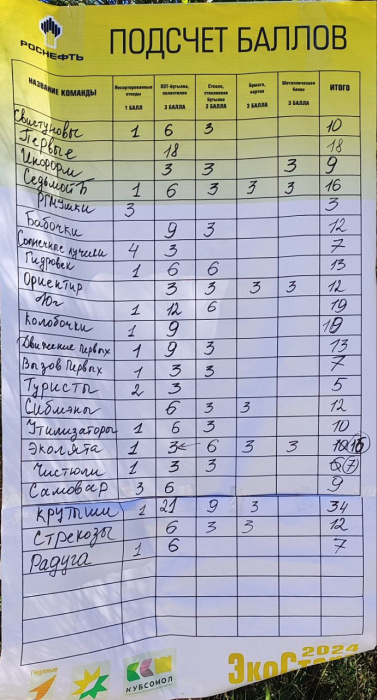 РОСНЕФТЬ
ПОДСЧЕТ БАЛЛОВ
НАЗВАНИЕ КОМАНДЫ Несортированные отходы 1 БАЛЛ ПЭТ-бутылка, полиэтилен 3 БАЛЛА Стекло, стеклянная бутылка 3 БАЛЛА Бумага, картон 3 БАЛЛА Металлическая банка 3 БАЛЛА ИТОГО
Свистуновы 1 6 3 10
Первые 18 18
Инорди 3 3 3 9
Седьмой Б 1 6 3 3 3 16
РГМУшки 3 3
Бабочки 9 3 12
Солнечные лучики 4 3 7
Гидровек 1 6 6 13
Ориентир 3 3 3 3 12
Юг 1 12 6 19
Колобочки 1 9 10
Движение Первых 1 9 3 13
Вызов Первых 1 3 3 7
Туристы 2 3 5
Сибмэны 6 3 3 12
Утилизаторы 1 6 3 10
Эколята 1 3 6 3 3 16
Чистюли 1 3 3 6 (7)
Самовар 3 6 9
Крутыши 1 21 9 3 34
Стрекозы 6 3 3 12
Радуга 1 6 7
Первые
КУБСОМОЛ
2024